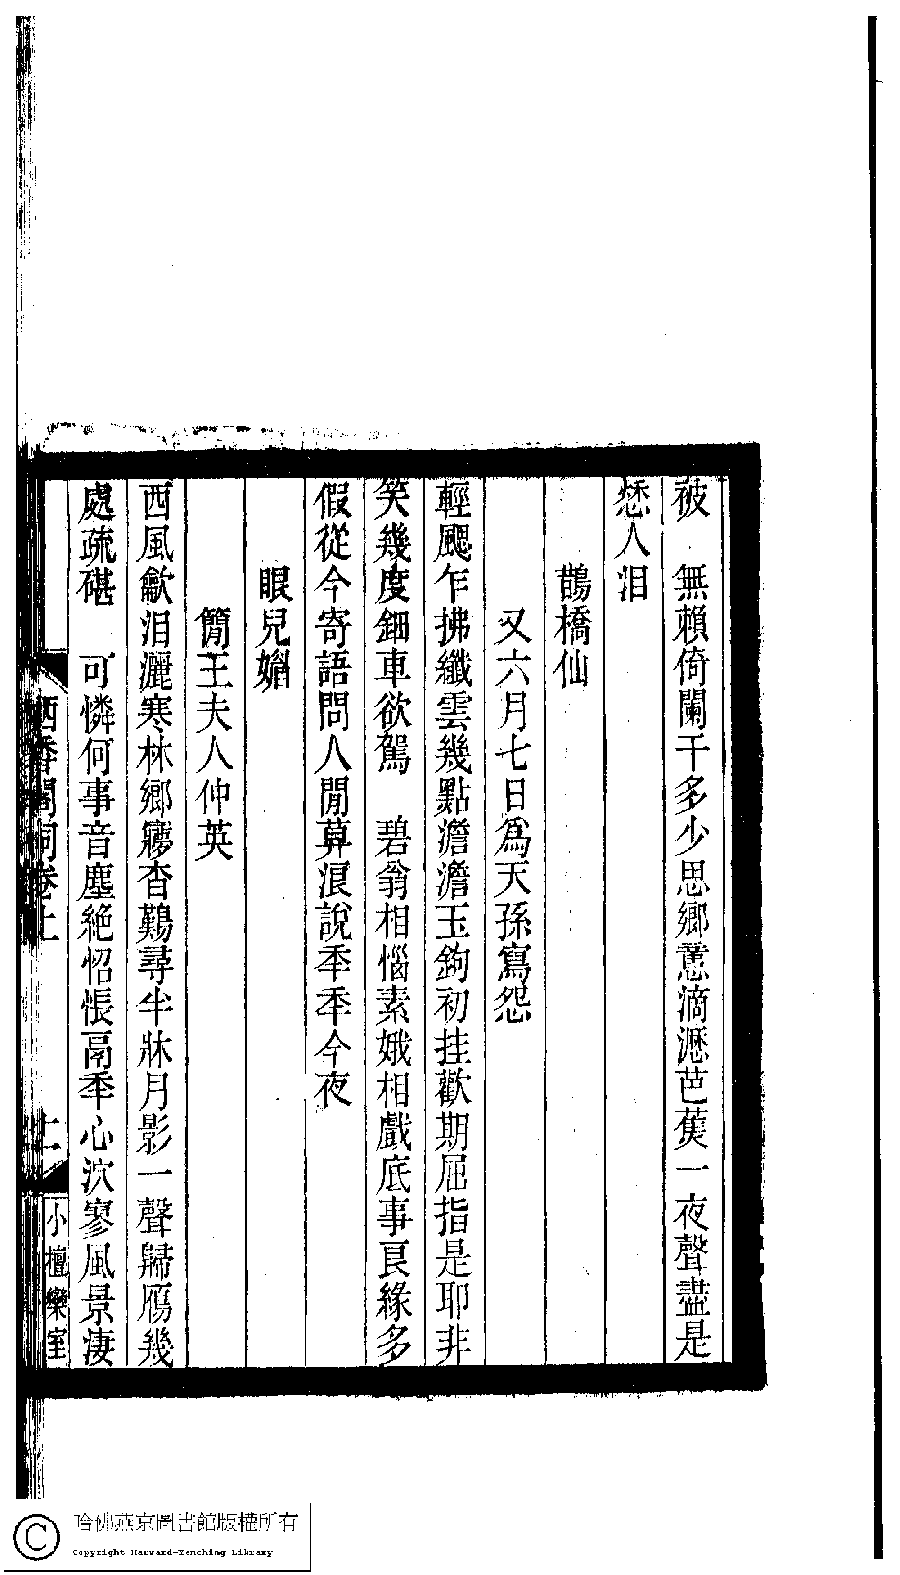 被　無賴倚闌干多少思鄉意滴瀝芭蕉一夜聲盡是
愁人泪
鵲橋仙
又六月七日為天孫寫怨
輕颸乍拂纖雲幾點澹澹玉鉤初挂歡期屈指是耶非
笑幾度鈿車欲駕　碧翁相惱素娥相戲底事良緣多
假從今寄語問人閒算浪說秊秊今夜
眼兒媚
簡王夫人仲英
西風歔泪灑寒林鄉夢杳難尋半牀月影一聲歸鴈幾
處疏碪　可憐何事音塵絕怊悵鬲秊心泬寥風景淒
栖香閣詞卷上
十一
小檀欒室
哈佛燕京圖書館版權所有
Copyright Harvard-Yenching Library